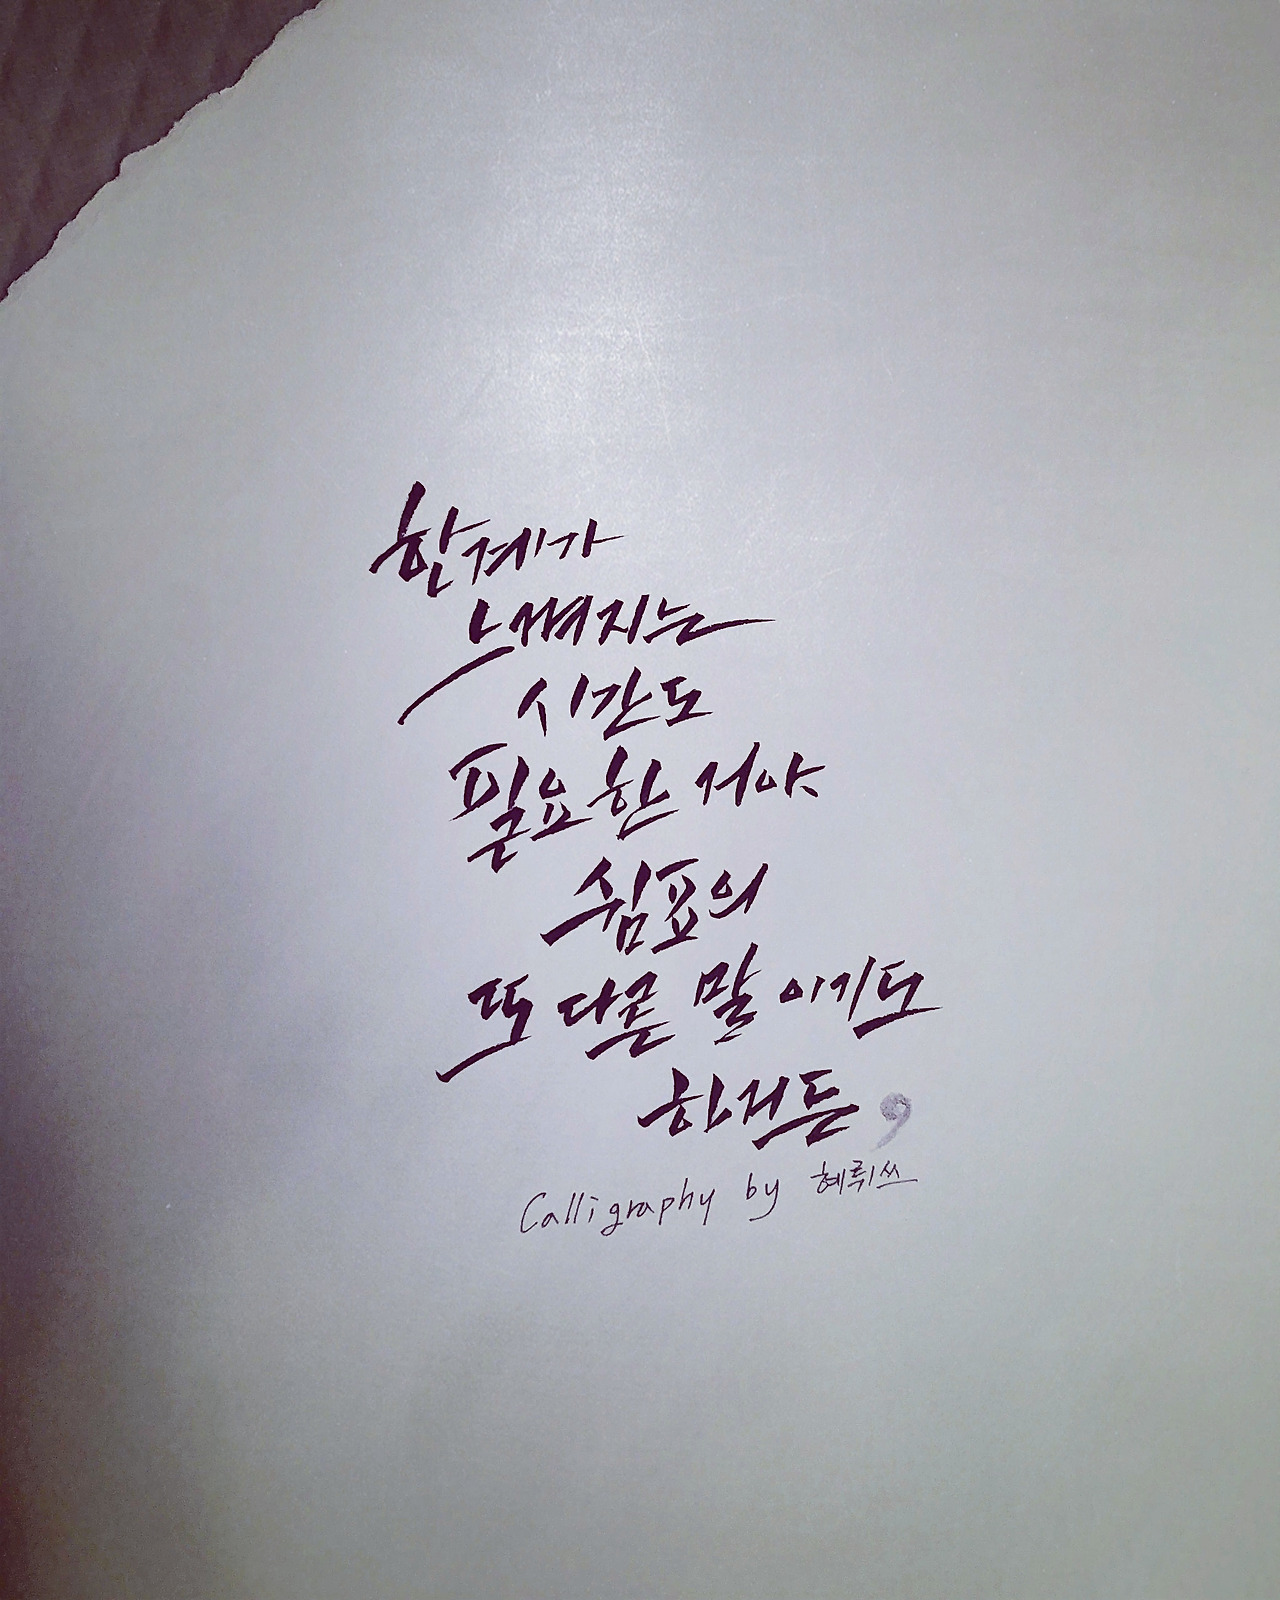 한계가
느껴지는
시간도
필요한 거야
쉼표의
또 다른 말이기도
하거든,
Calligraphy by 혜뤼쓰